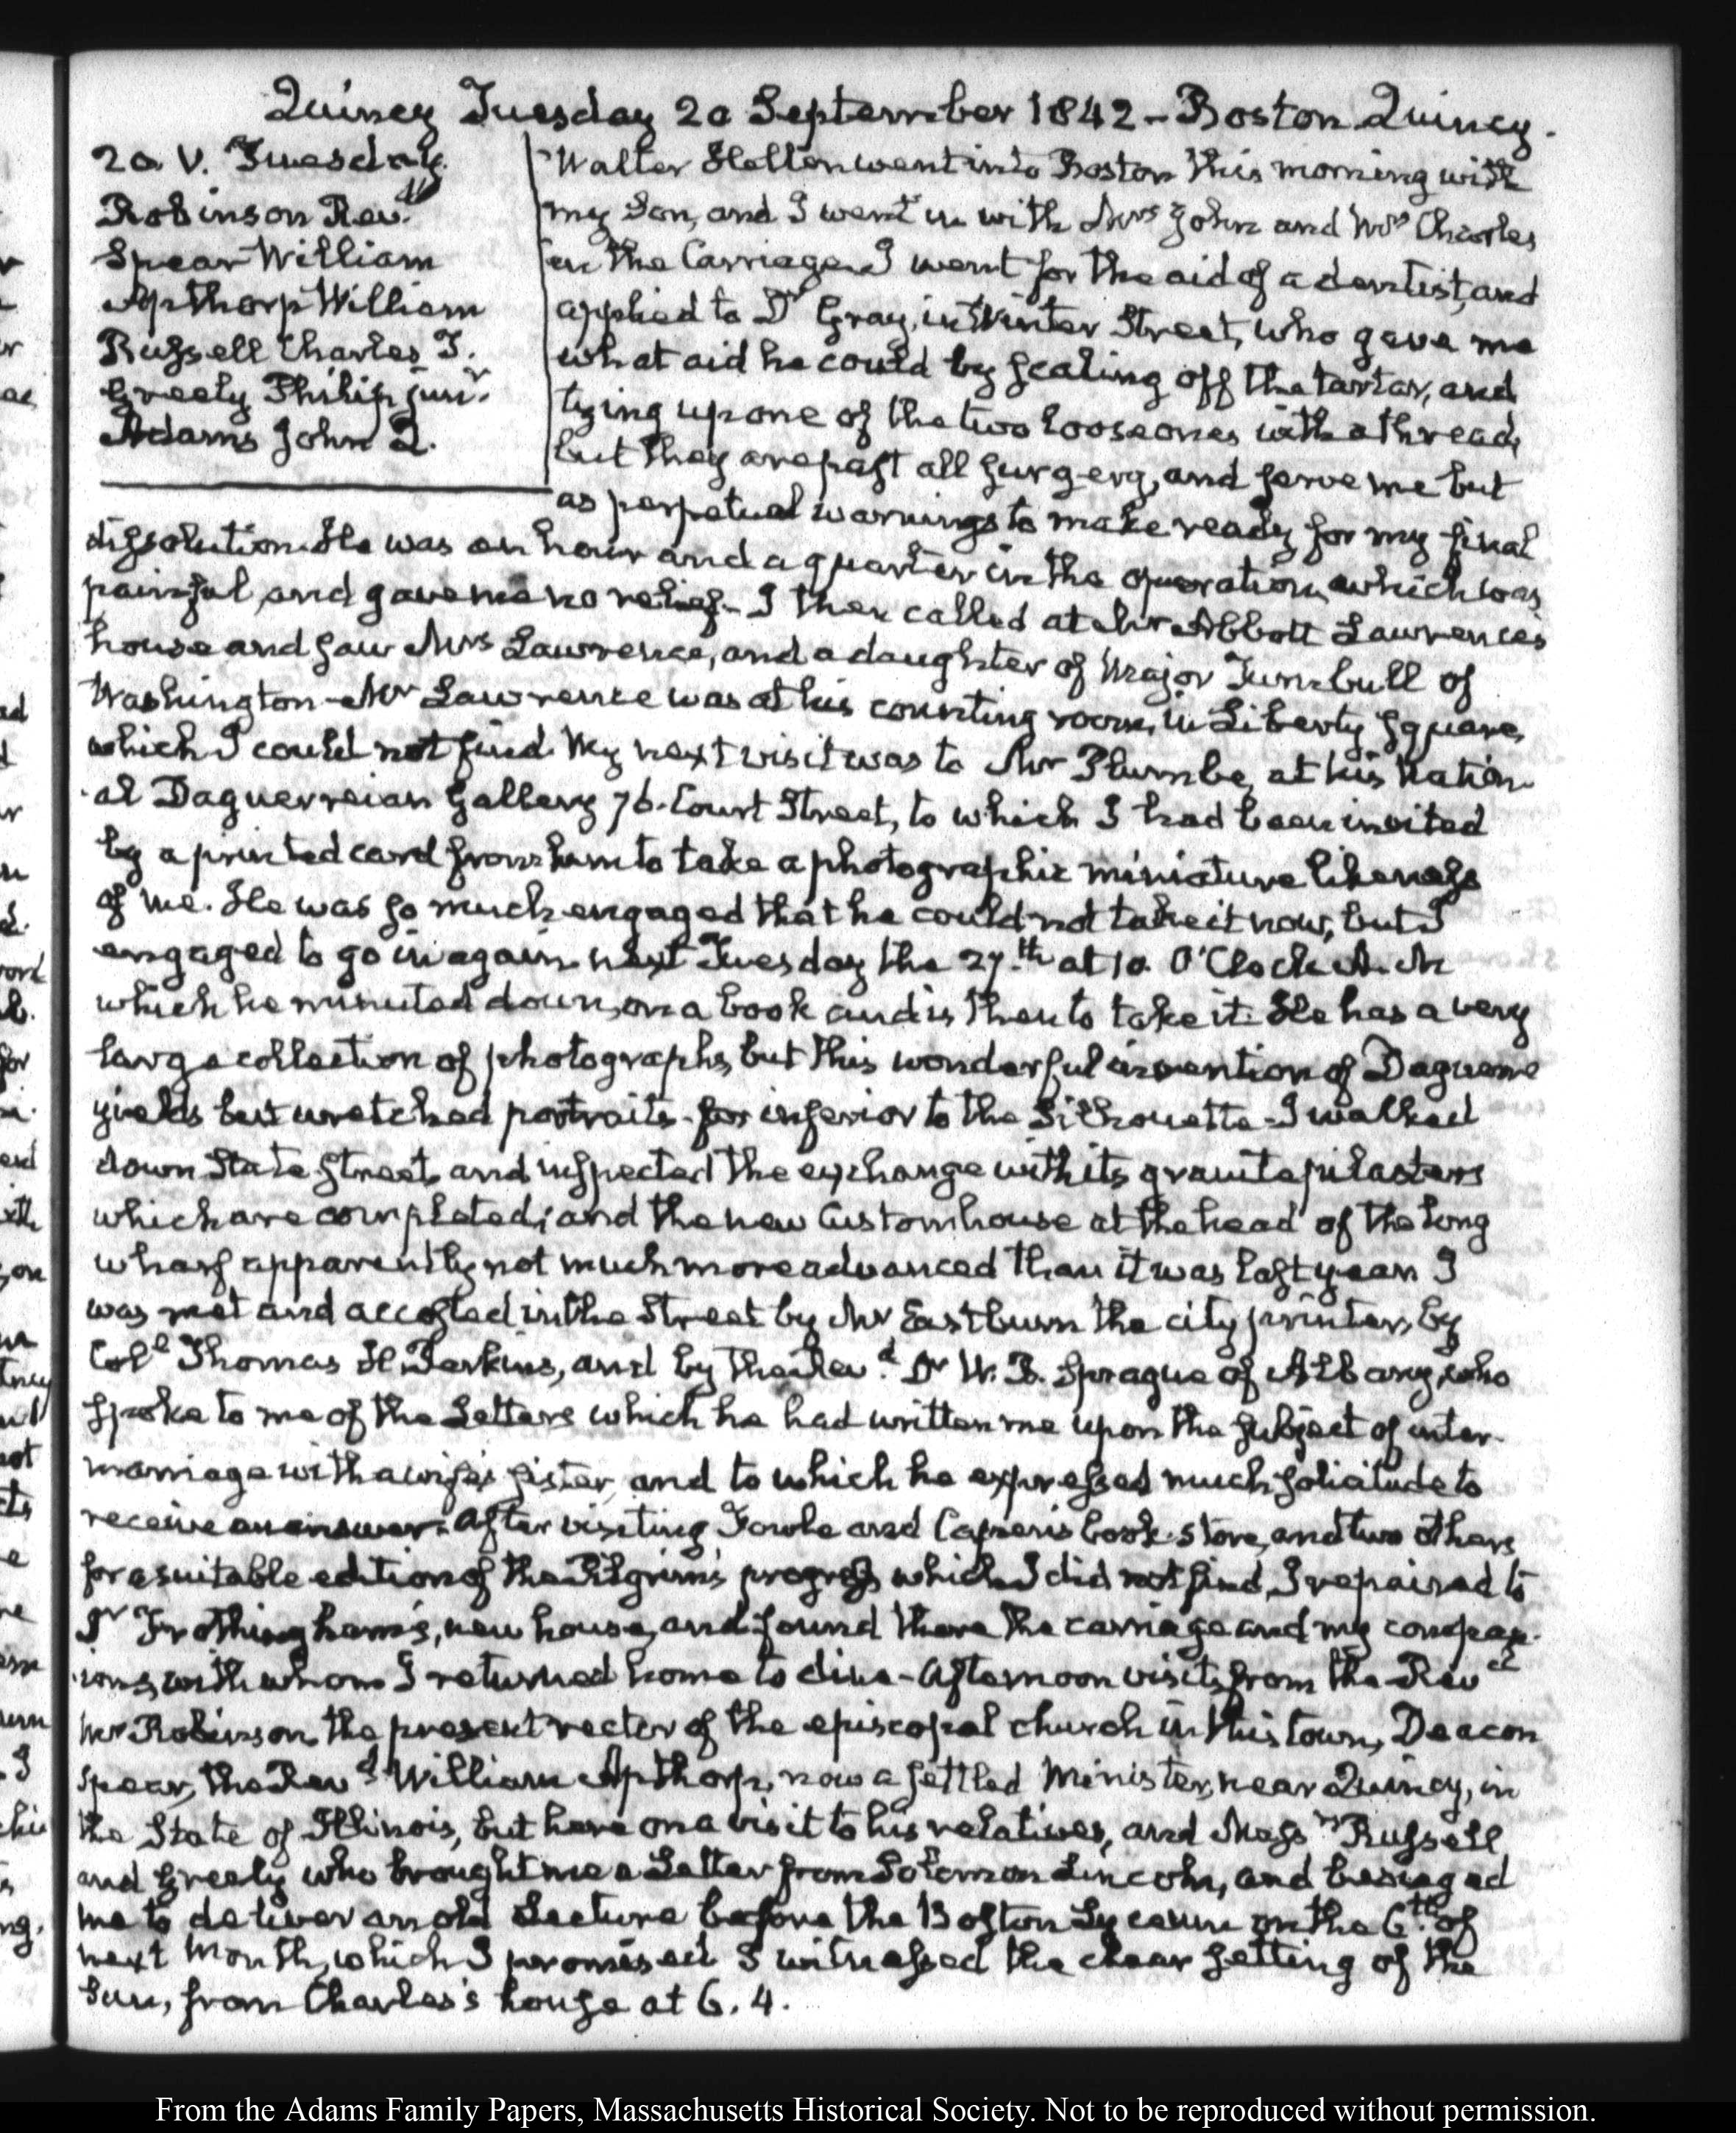 Quincy Tuesday 20 September 1842 - Boston Quincy.
20. V. Tuesday.
Robinson Revd.
Spear William
Apthorp William
Russell Charles T.
Greely Philip junr.
Adams John Q.
Walter Hellen went into Boston this morning with
my Son, and I went in with Mrs John and Mrs Charles
in the Carriage. I went for the aid of a dentist, and
applied to Dr Gray, in Winter Street, who gave me
what aid he could by scaling off the tartar, and
tying up one of the two loose ones with a thread,
but they are past all surgery, and serve me but
as perpetual warnings to make ready for my final
dissolution. He was an hour and a quarter in the operation, which was
painful, and gave me no relief - I then called at Mr Abbott Lawrence's
house and saw Mrs Lawrence, and a daughter of Major Turnbull of
Washington - Mr Lawrence was at his counting room, in Liberty square,
which I could not find. My next visit was to Mr Plumbe, at his Nation-
al Daguerreian Gallery 76. Court Street, to which I had been invited
by a printed card from him to take a photographic miniature likeness
of me. He was so much engaged that he could not take it now, but I
engaged to go in again next Tuesday the 27.th at 10. O'Clock A. M
which he minuted down, on a book and is then to take it. He has a very
large collection of photographs, but this wonderful invention of Daguerre
yields but wretched portraits - far inferior to the Silhouette - I walked
down State Street, and inspected the exchange with its granite pilasters
which are completed; and the new Customhouse at the head of the long
wharf apparently not much more advanced than it was last year. I
was met and accosted in the Street by Mr Eastburn the city printer, by
Coll Thomas H. Perkins, and by the Revd. Dr W. B. Sprague of Albany, who
spoke to me of the Letters which he had written me upon the subject of inter-
marriage with a wife's sister, and to which he expressed much solicitude to
receive an answer. After visiting book-store, and two others
for a suitable edition of the Pilgrim's progress which I did not find, I repaired to
Dr Frothingham's, new house, and found there the carriage and my compan-
ions, with whom I returned home to dine - Afternoon visits from the Revd
Mr Robinson the present rector of the episcopal church in this town, Deacon
Spear, the Revd William Apthorp, now a settled Minister, near Quincy, in
the State of Illinois, but here on a visit to his relatives, and Messrs Russell
and Greely who brought me a Letter from Solomon Lincoln, and besieged
me to deliver an old Lecture before the Boston Lyceum on the 6th. of
next Month, which I promised I witnessed the clear setting of the
Sun, from Charles's house at 6. 4.
From the Adams Family Papers, Massachusetts Historical Society. Not to be reproduced without permission.